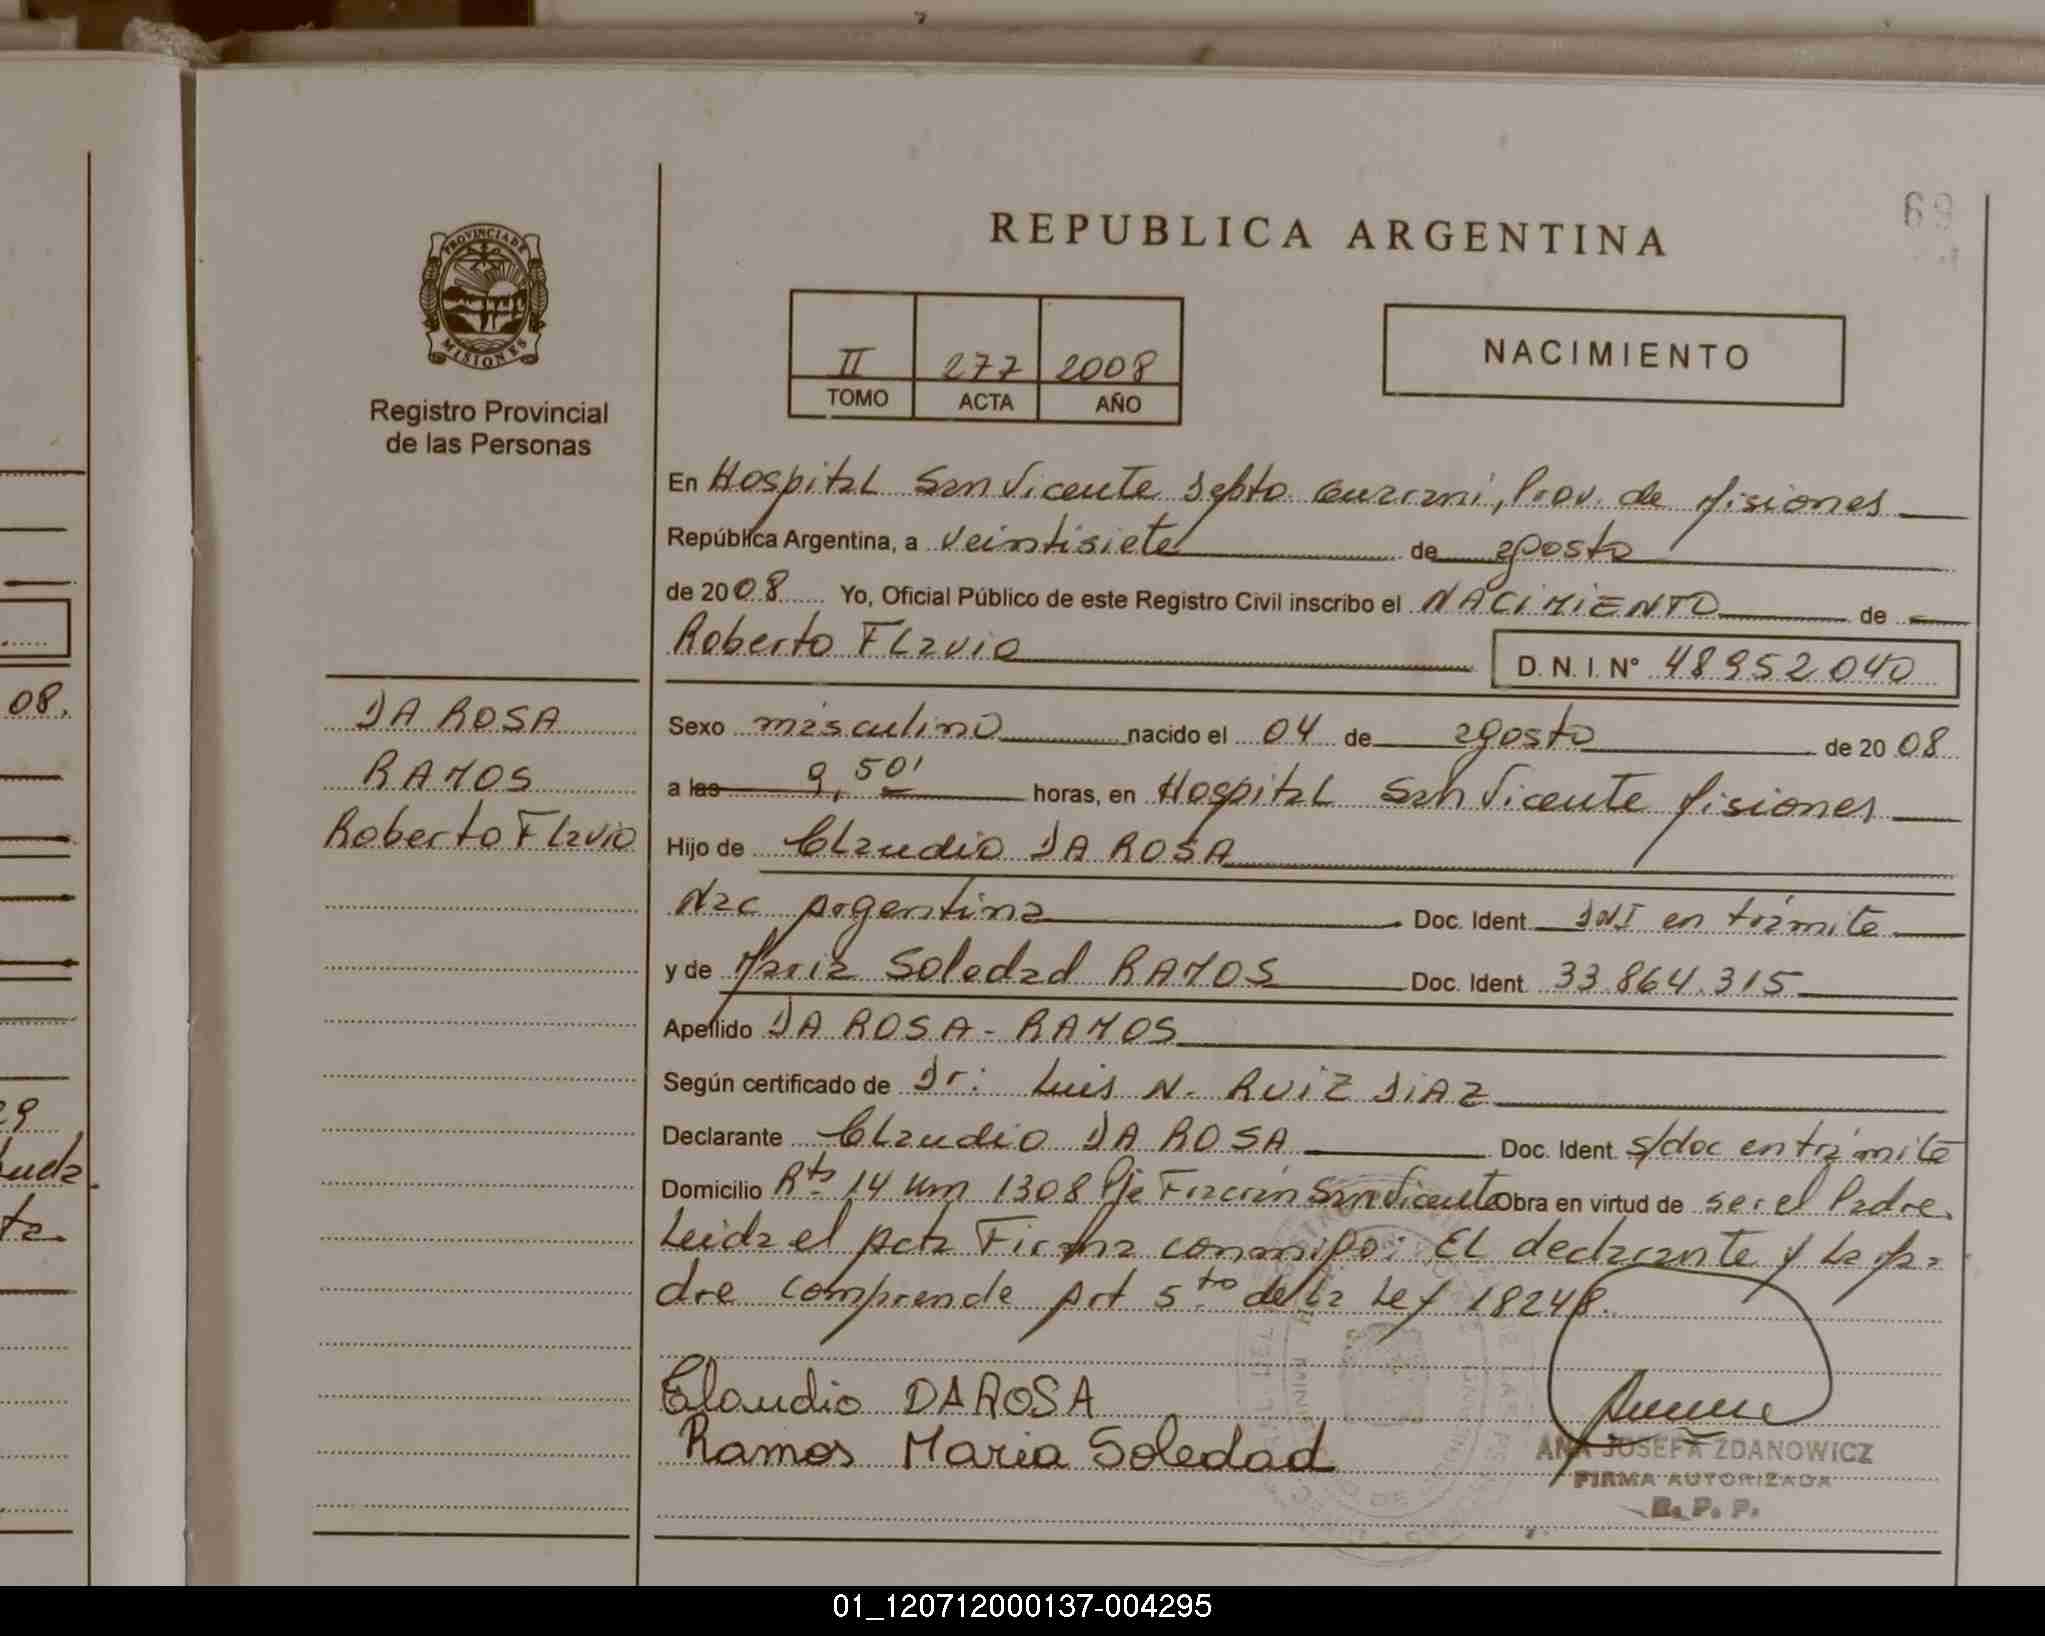 69
REPUBLICA ARGENTINA
PROVINCIA DE
MISIONES
Registro Provincial
de las Personas
II 277 2008
TOMO ACTA AÑO
NACIMIENTO
En Hospital San Vicente Depto Guarani, Prov. de Misiones
República Argentina, a veintisiete de agosto
de 2008 Yo, Oficial Público de este Registro Civil inscribo el NACIMIENTO de
Roberto Flavio
D. N. I. N° 48952040
DA ROSA
RAMOS
Roberto Flavio
Sexo masculino nacido el 04 de agosto de 2008
a las 9,50' horas, en Hospital San Vicente Misiones
Hijo de Claudio DA ROSA
Nac Argentina Doc. Ident. DNI en trámite
y de Maria Soledad RAMOS Doc. Ident. 33.864.315
Apellido DA ROSA - RAMOS
Según certificado de Dr: Luis N. RUIZ DIAZ
Declarante Claudio DA ROSA Doc. Ident. s/doc en trámite
Domicilio Rta 14 Km 1308 Pje Fracrán San Vicente Obra en virtud de ser el Padre.
Leida el Acta Firma conmigo: EL declarante y La Ma=
dre comprende Art 5to de la Ley 18248.
Claudio DA ROSA
Ramos Maria Soledad
ANA JOSEFA ZDANOWICZ
FIRMA AUTORIZADA
R. P. P.
08.
29
01_120712000137-004295